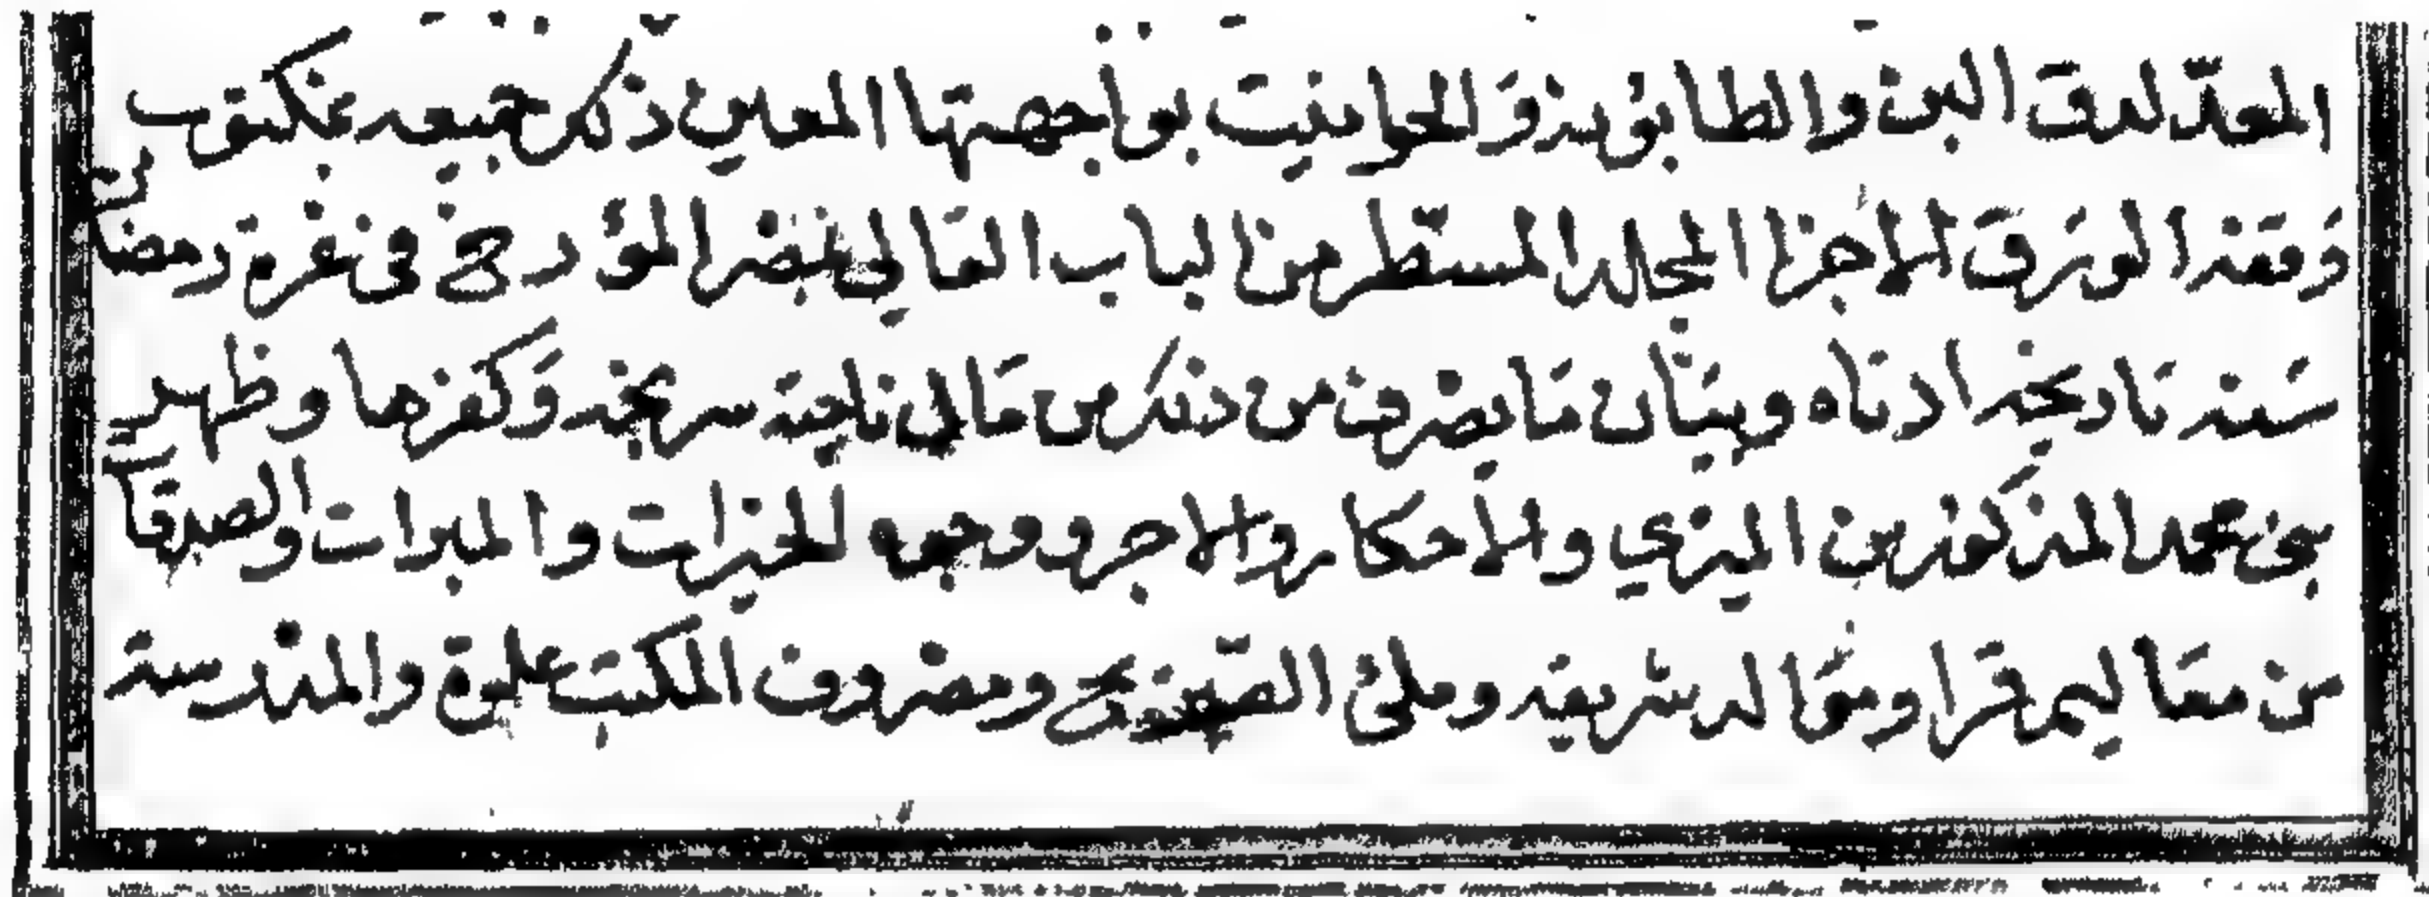 المعدّ لدق البن والطابونة والحوانيت بواجهتها المعين ذلك جميعه بمكتوب
وقفه الورق الاجزا المجلد المسطر من الباب العالي بمصر المؤرخ في غرة رمضان
سنة تاريخه ادناه وبيان ما يصرف من ذلك من مال ناحية وكفرها وظهر
بني محمد المذكورين الميري والاحكار والاجر ووجوه للخيرات والمبرات والصدقات
من معاليم قرا وموالد شريفه وملئ الصهريج ومصروف المكتب علوه والمدرسة